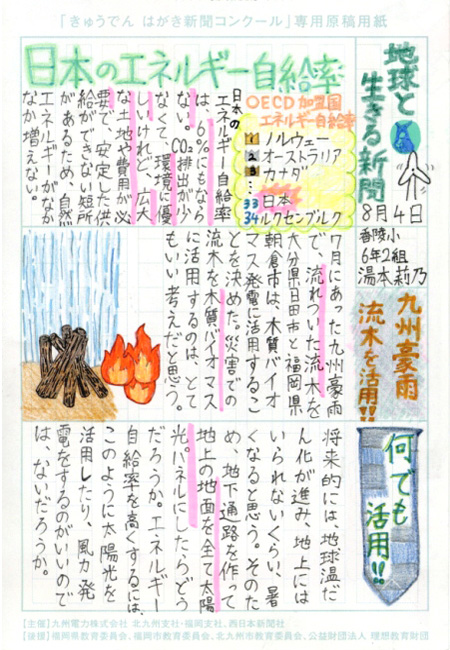 「きゅうでん はがき新聞コンクール」専用原稿用紙
地球と
生きる新聞
8月4日
香陵小
6年2組
湯本莉乃
日本のエネルギー自給率
OECD加盟国
エネルギー自給率
1 ノルウェー
2 オーストラリア
3 カナダ
⋮
33 日本
34 ルクセンブルク
日本の
エネルギー自給率
は、6%にもなら
ない。CO2排出が少
なくて、環境に優
しいけれど、広大
な土地や費用が必
要で、安定した供
給ができない短所
があるため、自然
エネルギーがなか
なか増えない。
九州豪雨
流木を活用!!
7月にあった九州豪雨
で、流れついた流木を
大分県日田市と福岡県
朝倉市は、木質バイオ
マス発電に活用するこ
とを決めた。災害での
流木を木質バイオマス
に活用するのは、とて
もいい考えだと思う。
何でも
活用!!
将来的には、地球温だ
ん化が進み、地上には
いられないくらい、暑
くなると思う。そのた
め、地下通路を作って
地上の地面を全て太陽
光パネルにしたらどう
だろうか。エネルギー
自給率を高くするには、
このように太陽光を
活用したり、風力発
電をするのがいいので
は、ないだろうか。
【主催】九州電力株式会社 北九州支社・福岡支社、西日本新聞社
【後援】福岡県教育委員会、福岡市教育委員会、北九州市教育委員会、公益財団法人 理想教育財団